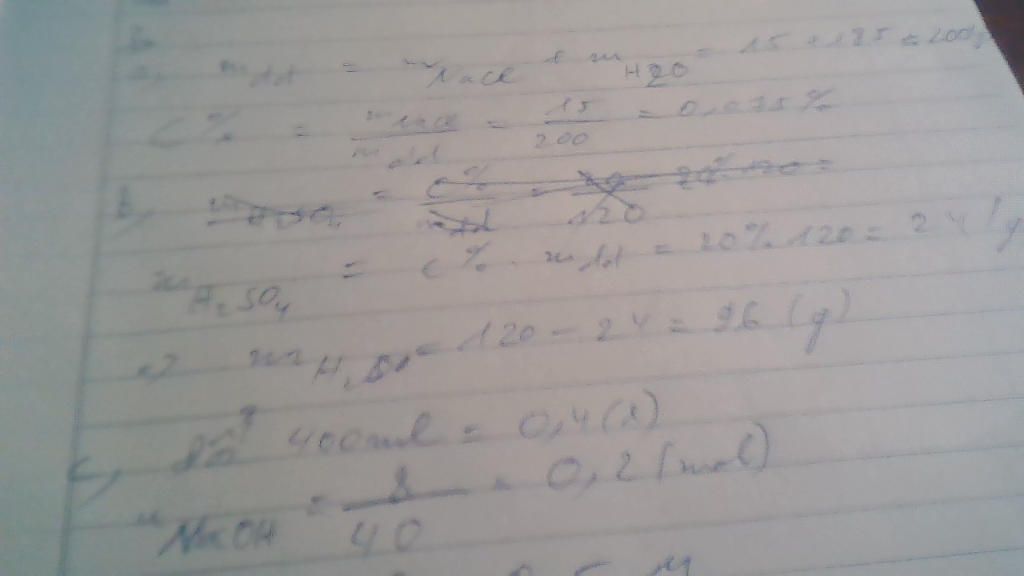 a, mdd = mNaCl + mH2O = 15 + 185 = 200g
C% = mNaCl / mdd = 15 / 200 = 0,075%
b, mH2SO4 = C% / mdd = 20 / 120 = 20% 120 =
mH2SO4 = C% . mdd = 20% . 120 = 24 g
=> mH2O = 120 - 24 = 96 (g)
c, đổi 400ml = 0,4 (l)
nNaOH = 8 / 40 = 0,2 (mol)
0,5 M